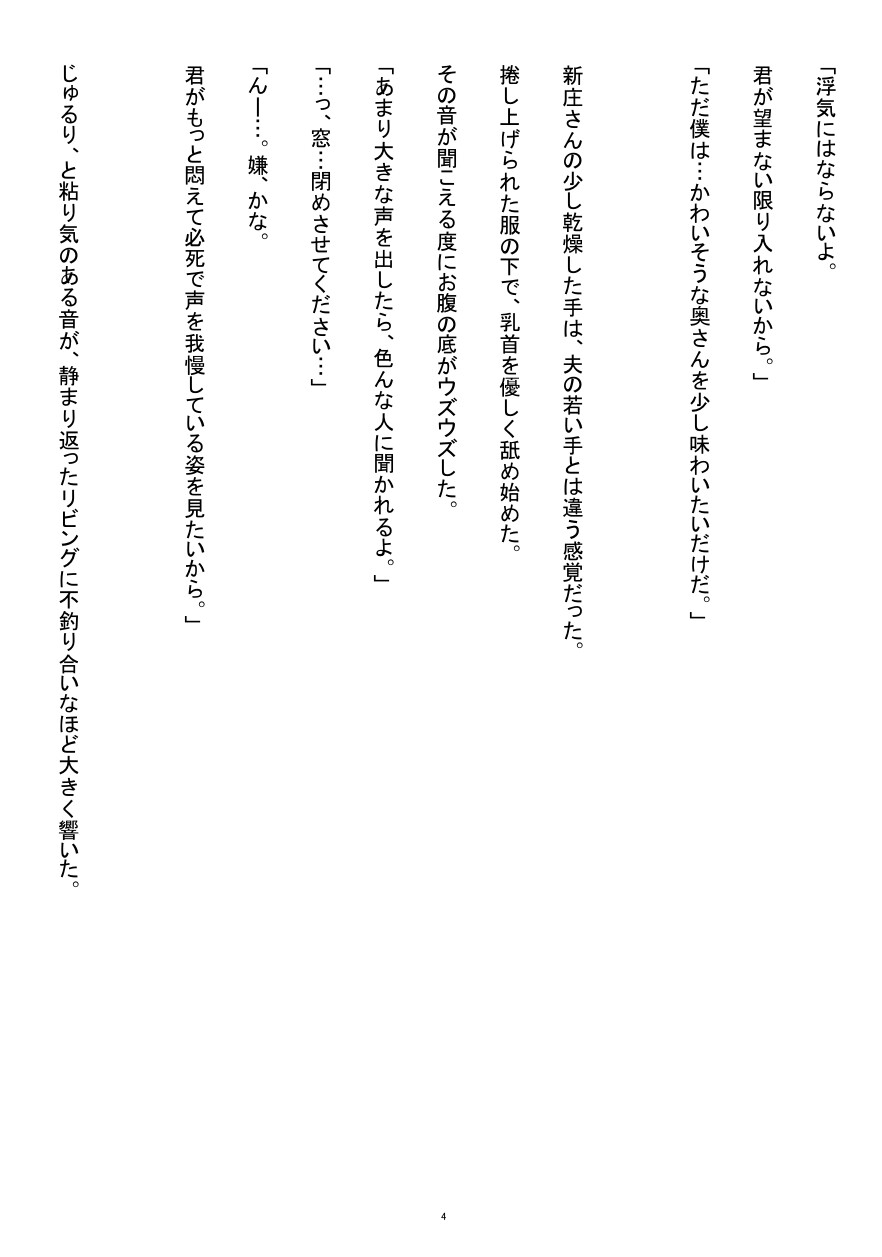 「浮気にはならないよ。
君が望まない限り入れないから。」
「ただ僕は…かわいそうな奥さんを少し味わいたいだけだ。」
新庄さんの少し乾燥した手は、夫の若い手とは違う感覚だった。
捲し上げられた服の下で、乳首を優しく舐め始めた。
その音が聞こえる度にお腹の底がウズウズした。
「あまり大きな声を出したら、色んな人に聞かれるよ。」
「…っ、窓…閉めさせてください…」
「んー…。嫌、かな。
君がもっと悶えて必死で声を我慢している姿を見たいから。」
じゅるり、と粘り気のある音が、静まり返ったリビングに不釣り合いなほど大きく響いた。
4